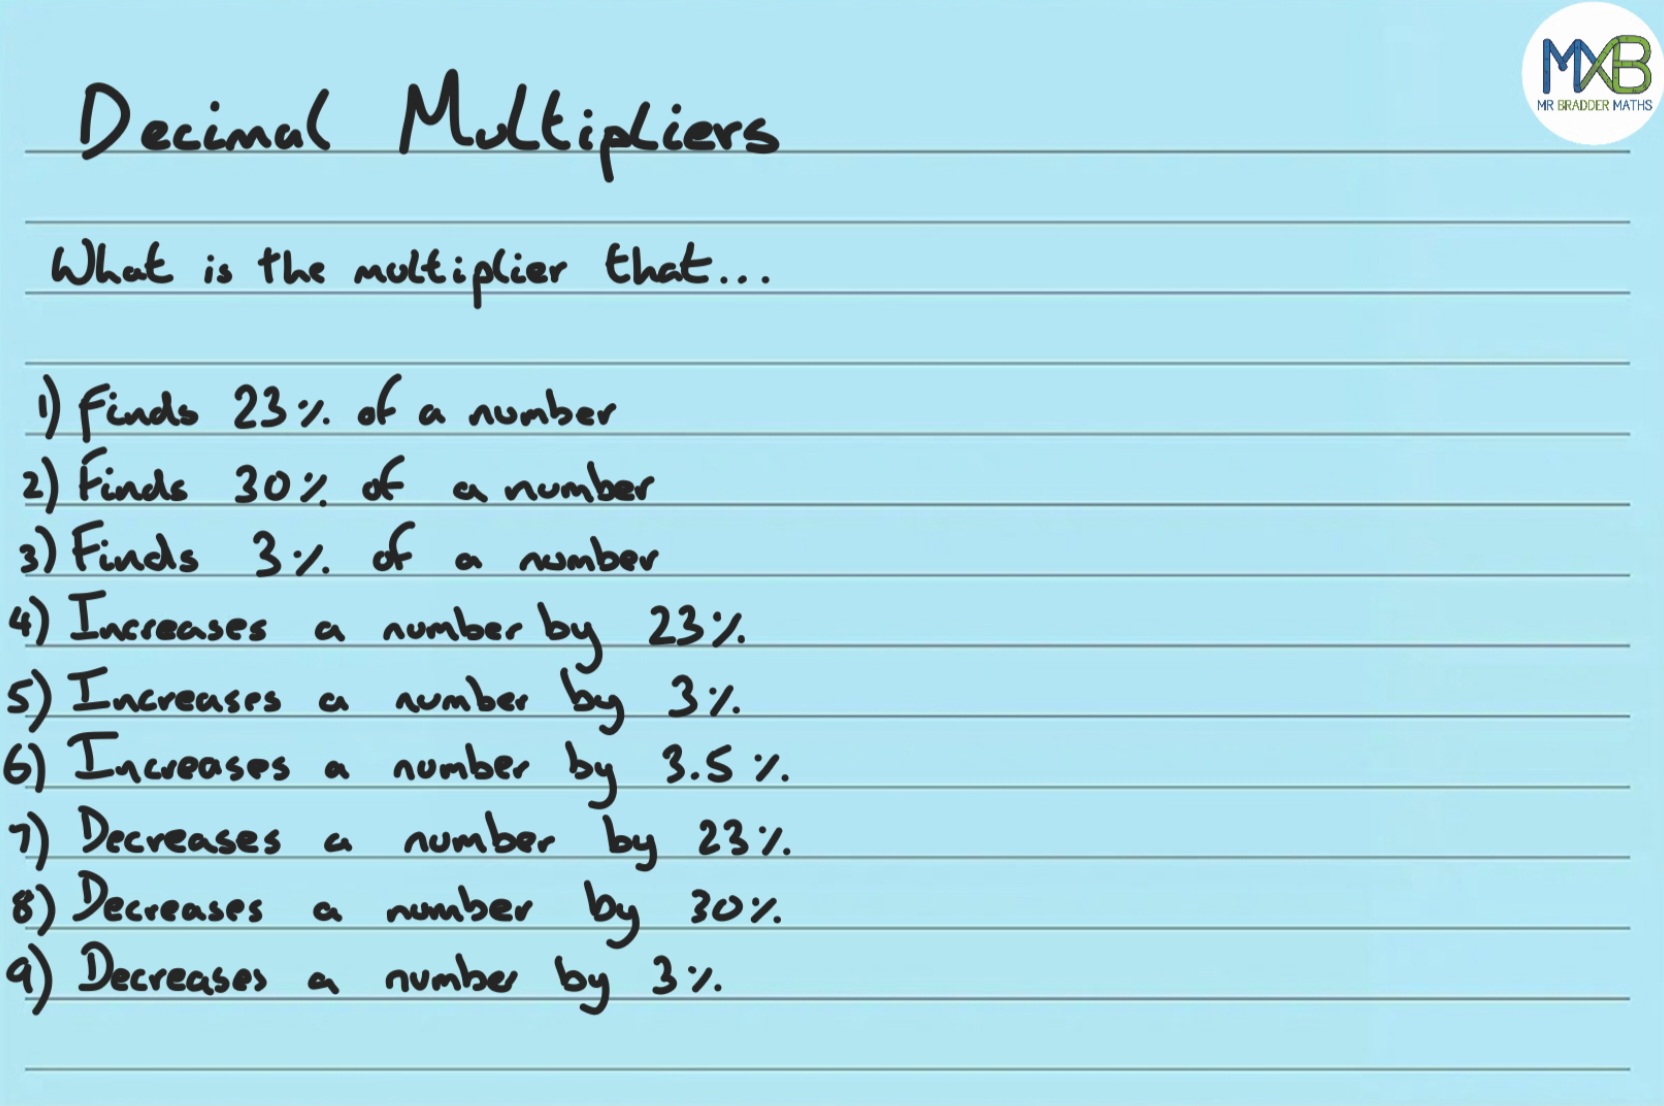 MXB
MR BRADDER MATHS
Decimal Multipliers
What is the multiplier that...
1) Finds 23% of a number
2) Finds 30% of a number
3) Finds 3% of a number
4) Increases a number by 23%
5) Increases a number by 3%
6) Increases a number by 3.5%
7) Decreases a number by 23%
8) Decreases a number by 30%
9) Decreases a number by 3%